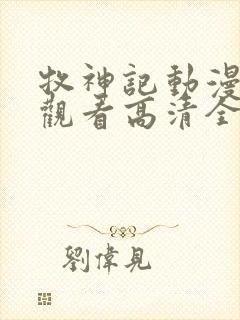 牧神記動漫
觀看高清全
劉偉見